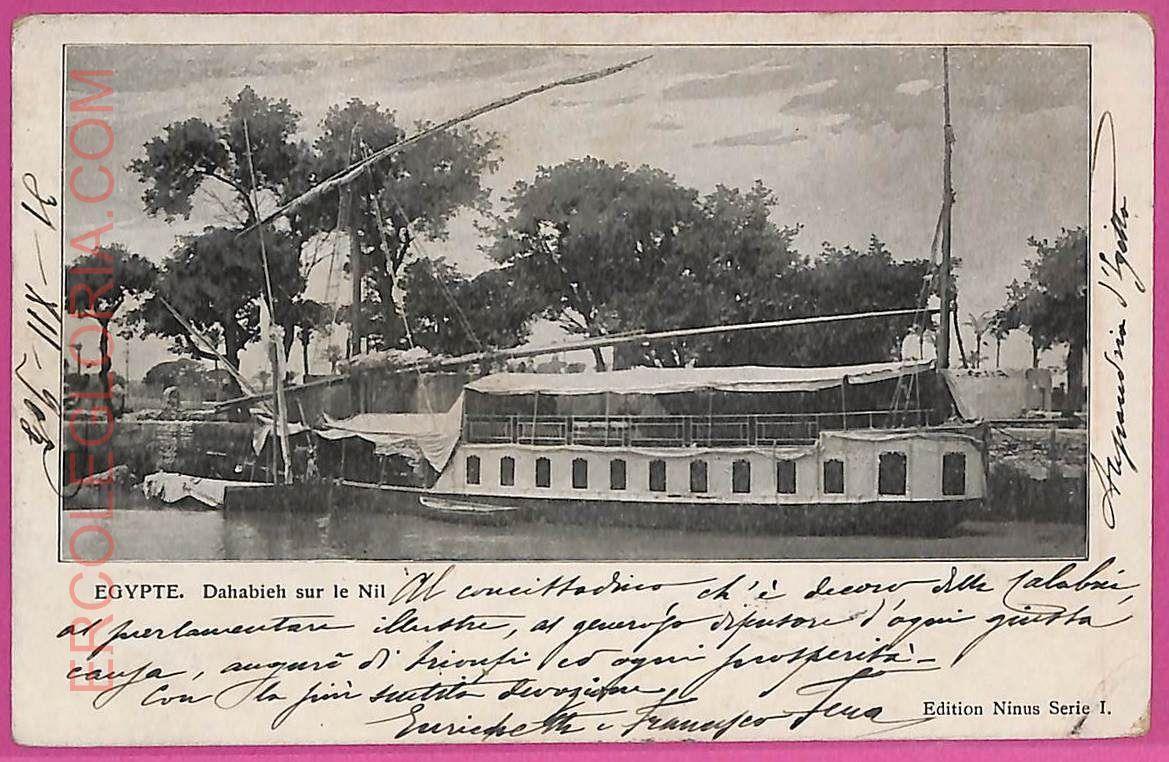 ERCOLEGLORIA.COM
31-XII-1905
Alessandria d'Egitto
EGYPTE. Dahabieh sur le Nil
Al concittadino ch'è decoro delle Calabrie,
al parlamentare illustre, al generoso difensore d'ogni giusta
causa, augurî di trionfi ed ogni prosperità-
Con la più sentita devozione
Enrichetta e Francesco
Edition Ninus Serie I.